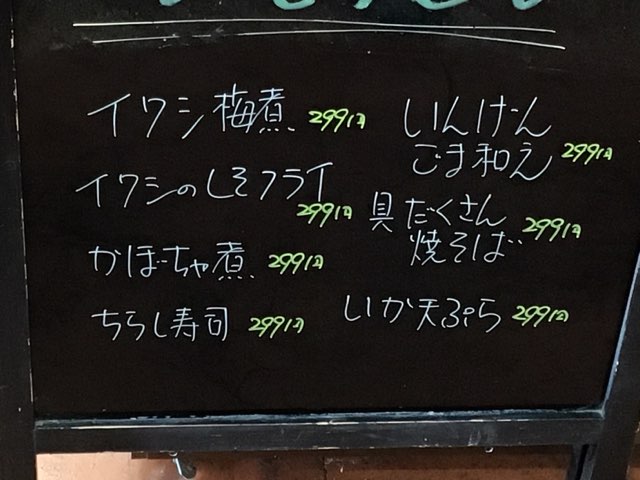 イワシ梅煮 299円
イワシのしそフライ
299円
かぼちゃ煮 299円
ちらし寿司 299円
いんげん
ごま和え 299円
具だくさん
焼そば 299円
いか天ぷら 299円